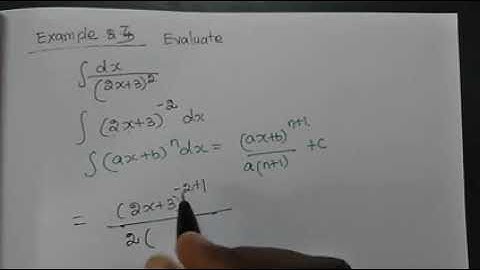 Example 8 Evaluate
∫ dx/(2x+3)^2
∫ (2x+3)^-2 dx
∫ (ax+b)^n dx = (ax+b)^n+1/a(n+1) +c
= (2x+3)^-2+1/2(